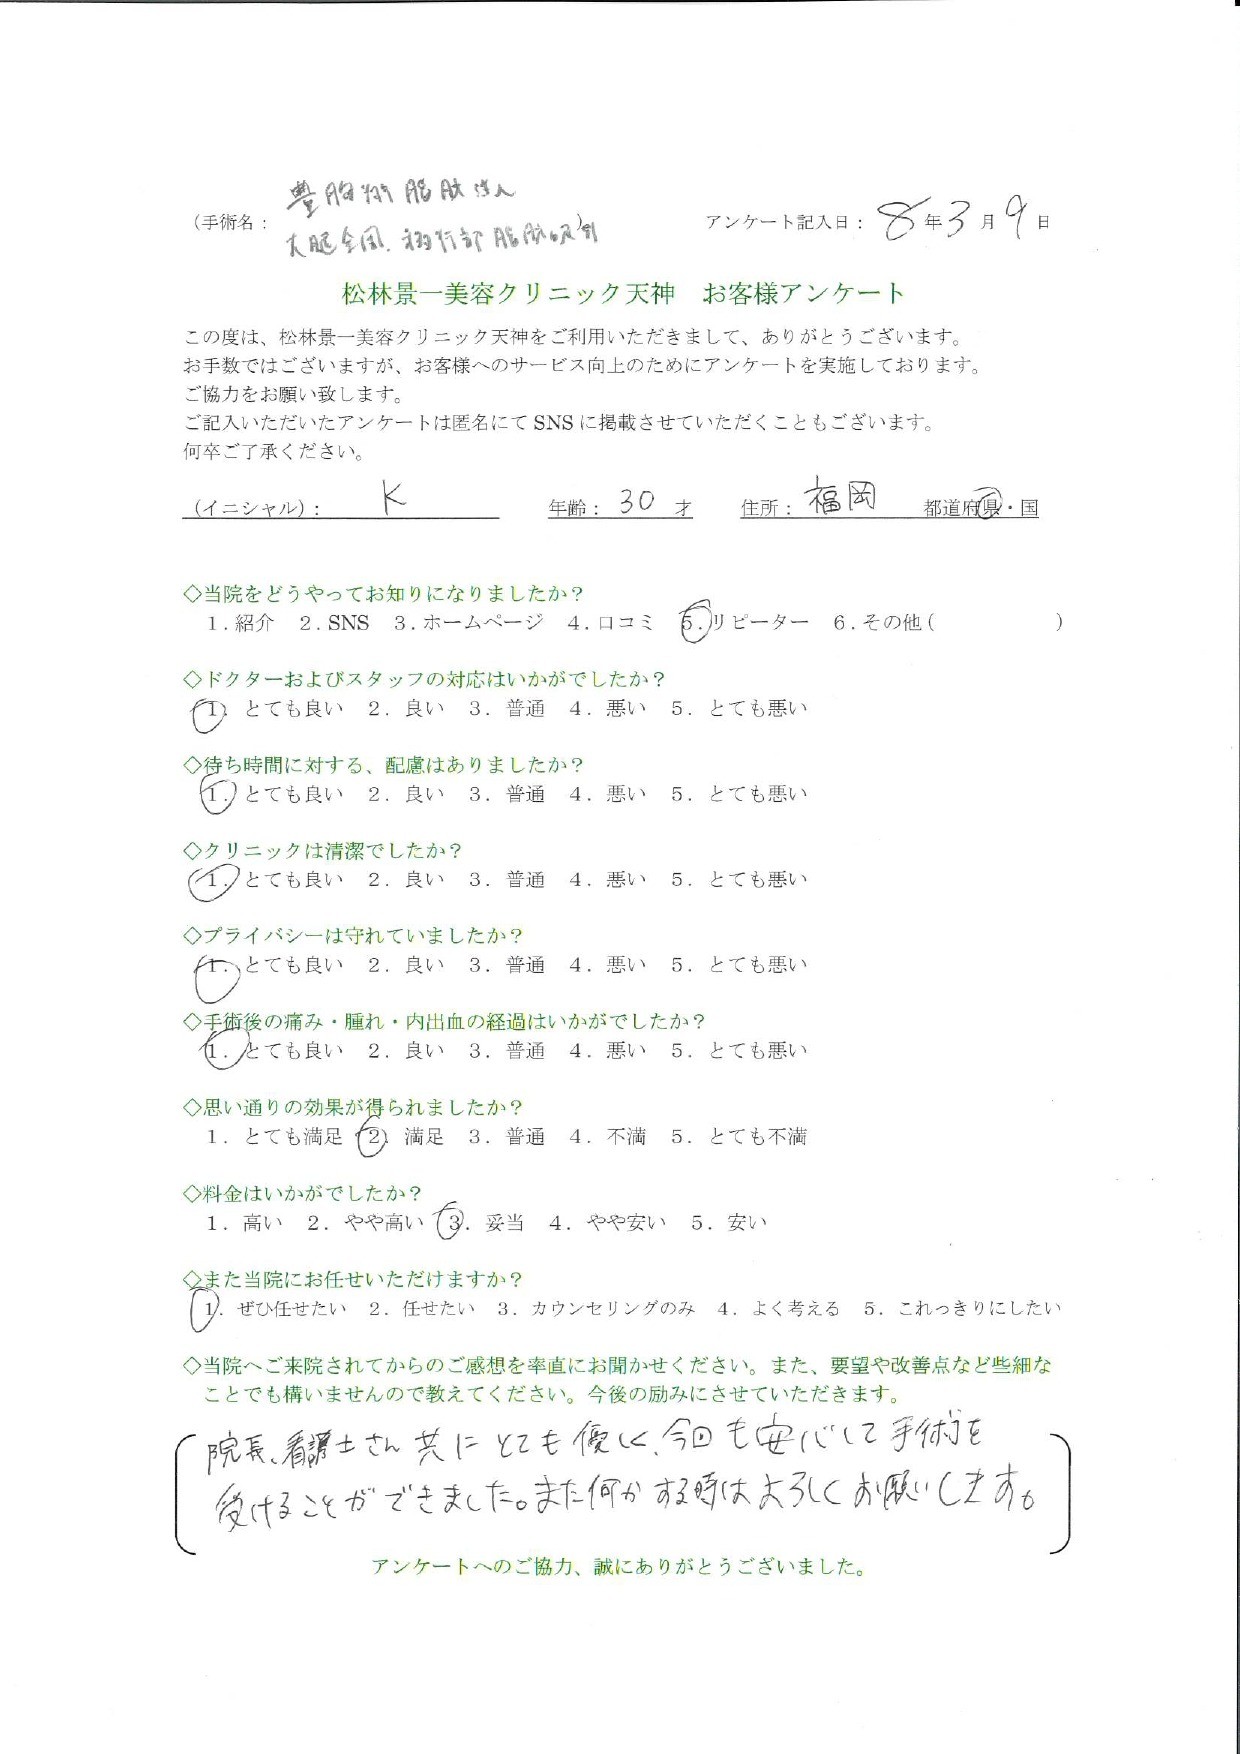 豊胸術 脂肪注入
(手術名: 大腿全周、移行部 脂肪吸引) アンケート記入日: 8年3月9日
松林景一美容クリニック天神 お客様アンケート
この度は、松林景一美容クリニック天神をご利用いただきまして、ありがとうございます。
お手数ではございますが、お客様へのサービス向上のためにアンケートを実施しております。
ご協力をお願い致します。
ご記入いただいたアンケートは匿名にて SNS に掲載させていただくこともございます。
何卒ご了承ください。
(イニシャル): K 年齢: 30 才 住所: 福岡 都道府県・国
◇当院をどうやってお知りになりましたか?
1.紹介 2.SNS 3.ホームページ 4.口コミ 5.リピーター 6.その他( )
◇ドクターおよびスタッフの対応はいかがでしたか?
1. とても良い 2. 良い 3. 普通 4. 悪い 5. とても悪い
◇待ち時間に対する、配慮はありましたか?
1. とても良い 2. 良い 3. 普通 4. 悪い 5. とても悪い
◇クリニックは清潔でしたか?
1. とても良い 2. 良い 3. 普通 4. 悪い 5. とても悪い
◇プライバシーは守れていましたか?
1. とても良い 2. 良い 3. 普通 4. 悪い 5. とても悪い
◇手術後の痛み・腫れ・内出血の経過はいかがでしたか?
1. とても良い 2. 良い 3. 普通 4. 悪い 5. とても悪い
◇思い通りの効果が得られましたか?
1. とても満足 2. 満足 3. 普通 4. 不満 5. とても不満
◇料金はいかがでしたか?
1. 高い 2. やや高い 3. 妥当 4. やや安い 5. 安い
◇また当院にお任せいただけますか?
1. ぜひ任せたい 2. 任せたい 3. カウンセリングのみ 4. よく考える 5. これっきりにしたい
◇当院へご来院されてからのご感想を率直にお聞かせください。また、要望や改善点など些細な
ことでも構いませんので教えてください。今後の励みにさせていただきます。
院長、看護士さん共にとても優しく、今回も安心して手術を
受けることができました。また何かする時はよろしくお願いします。
アンケートへのご協力、誠にありがとうございました。